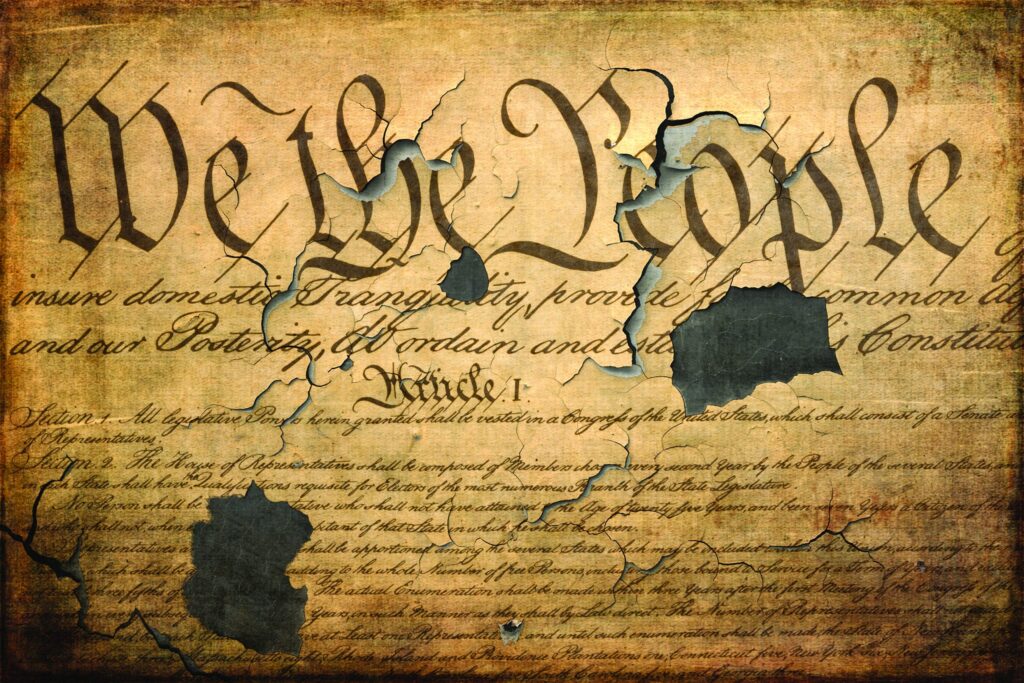 We the People
insure domestic Tranquility, provide common
and our Posterity, do ordain and Constitut
Article. I.
Section. 1. All legislative Powers herein granted shall be vested in a Congress of the United States, which shall consist of a Senate
of Representatives.
Section. 2. The House of Representatives shall be composed of Members chosen every second Year by the People of the several States, and
in each State shall have the Qualifications requisite for Electors of the most numerous Branch of the State Legislature.
No Person shall be tative who shall not have attained to the Age of twenty five Years, and been seven Years a Citizen of the
shall not, when itant of that State in which he shall be chosen.
shall be apportioned among the several States which may be included within this Union, according to
which shall be adding to the whole Number of free Persons, including those bound to Service for a Term of Years, and
The actual Enumeration shall be made within three Years after the first Meeting of the Congress of the
Years, in such Manner as they shall by Law direct. The Number of Representatives shall
at Least one Representative; and until such enumeration shall be made, the State of
Rhode Island and Providence Plantations one, Connecticut five, New York six,